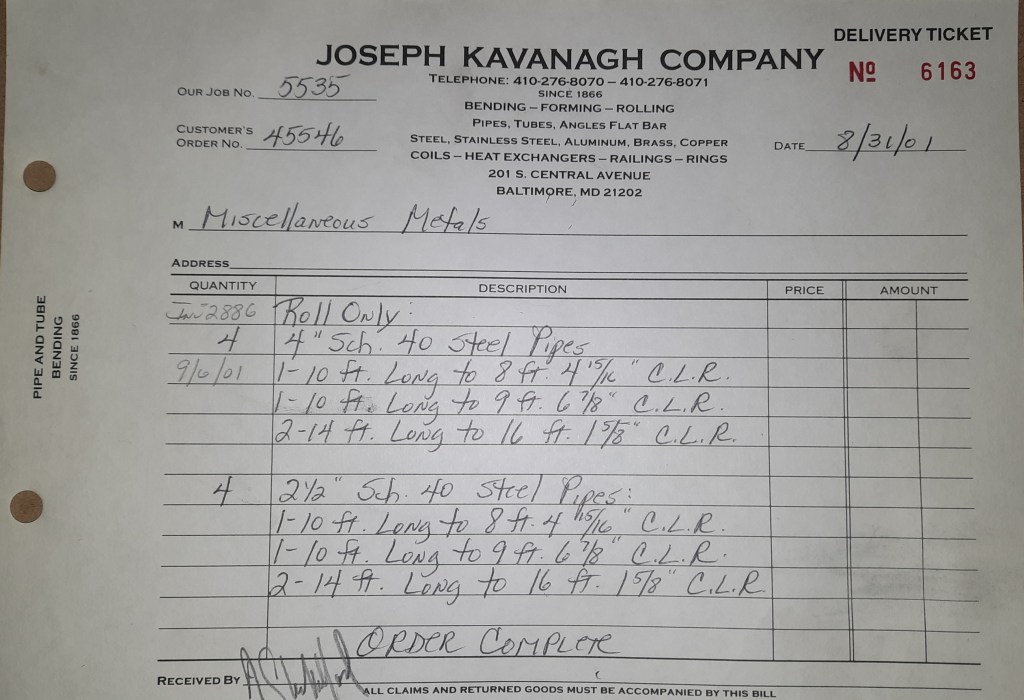 DELIVERY TICKET
JOSEPH KAVANAGH COMPANY
Nº 6163
TELEPHONE: 410-276-8070 – 410-276-8071
SINCE 1866
OUR JOB NO. 5535
BENDING – FORMING – ROLLING
PIPES, TUBES, ANGLES FLAT BAR
CUSTOMER'S ORDER NO. 45546
STEEL, STAINLESS STEEL, ALUMINUM, BRASS, COPPER
DATE 8/31/01
COILS – HEAT EXCHANGERS – RAILINGS – RINGS
201 S. CENTRAL AVENUE
BALTIMORE, MD 21202
M Miscellaneous Metals
ADDRESS
QUANTITY DESCRIPTION PRICE AMOUNT
Inv 2886 Roll Only:
4 4" Sch. 40 Steel Pipes
9/6/01 1-10 ft. Long to 8 ft. 4 15/16" C.L.R.
1-10 ft. Long to 9 ft. 6 7/8" C.L.R.
2-14 ft. Long to 16 ft. 1 5/8" C.L.R.
4 2 1/2" Sch. 40 Steel Pipes:
1-10 ft. Long to 8 ft. 4 15/16" C.L.R.
1-10 ft. Long to 9 ft. 6 7/8" C.L.R.
2-14 ft. Long to 16 ft. 1 5/8" C.L.R.
ORDER COMPLETE
RECEIVED BY
ALL CLAIMS AND RETURNED GOODS MUST BE ACCOMPANIED BY THIS BILL
PIPE AND TUBE
BENDING
SINCE 1866